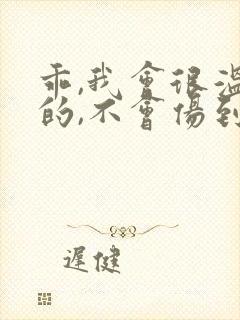 乖,我會很溫
的,不會傷到
遲健